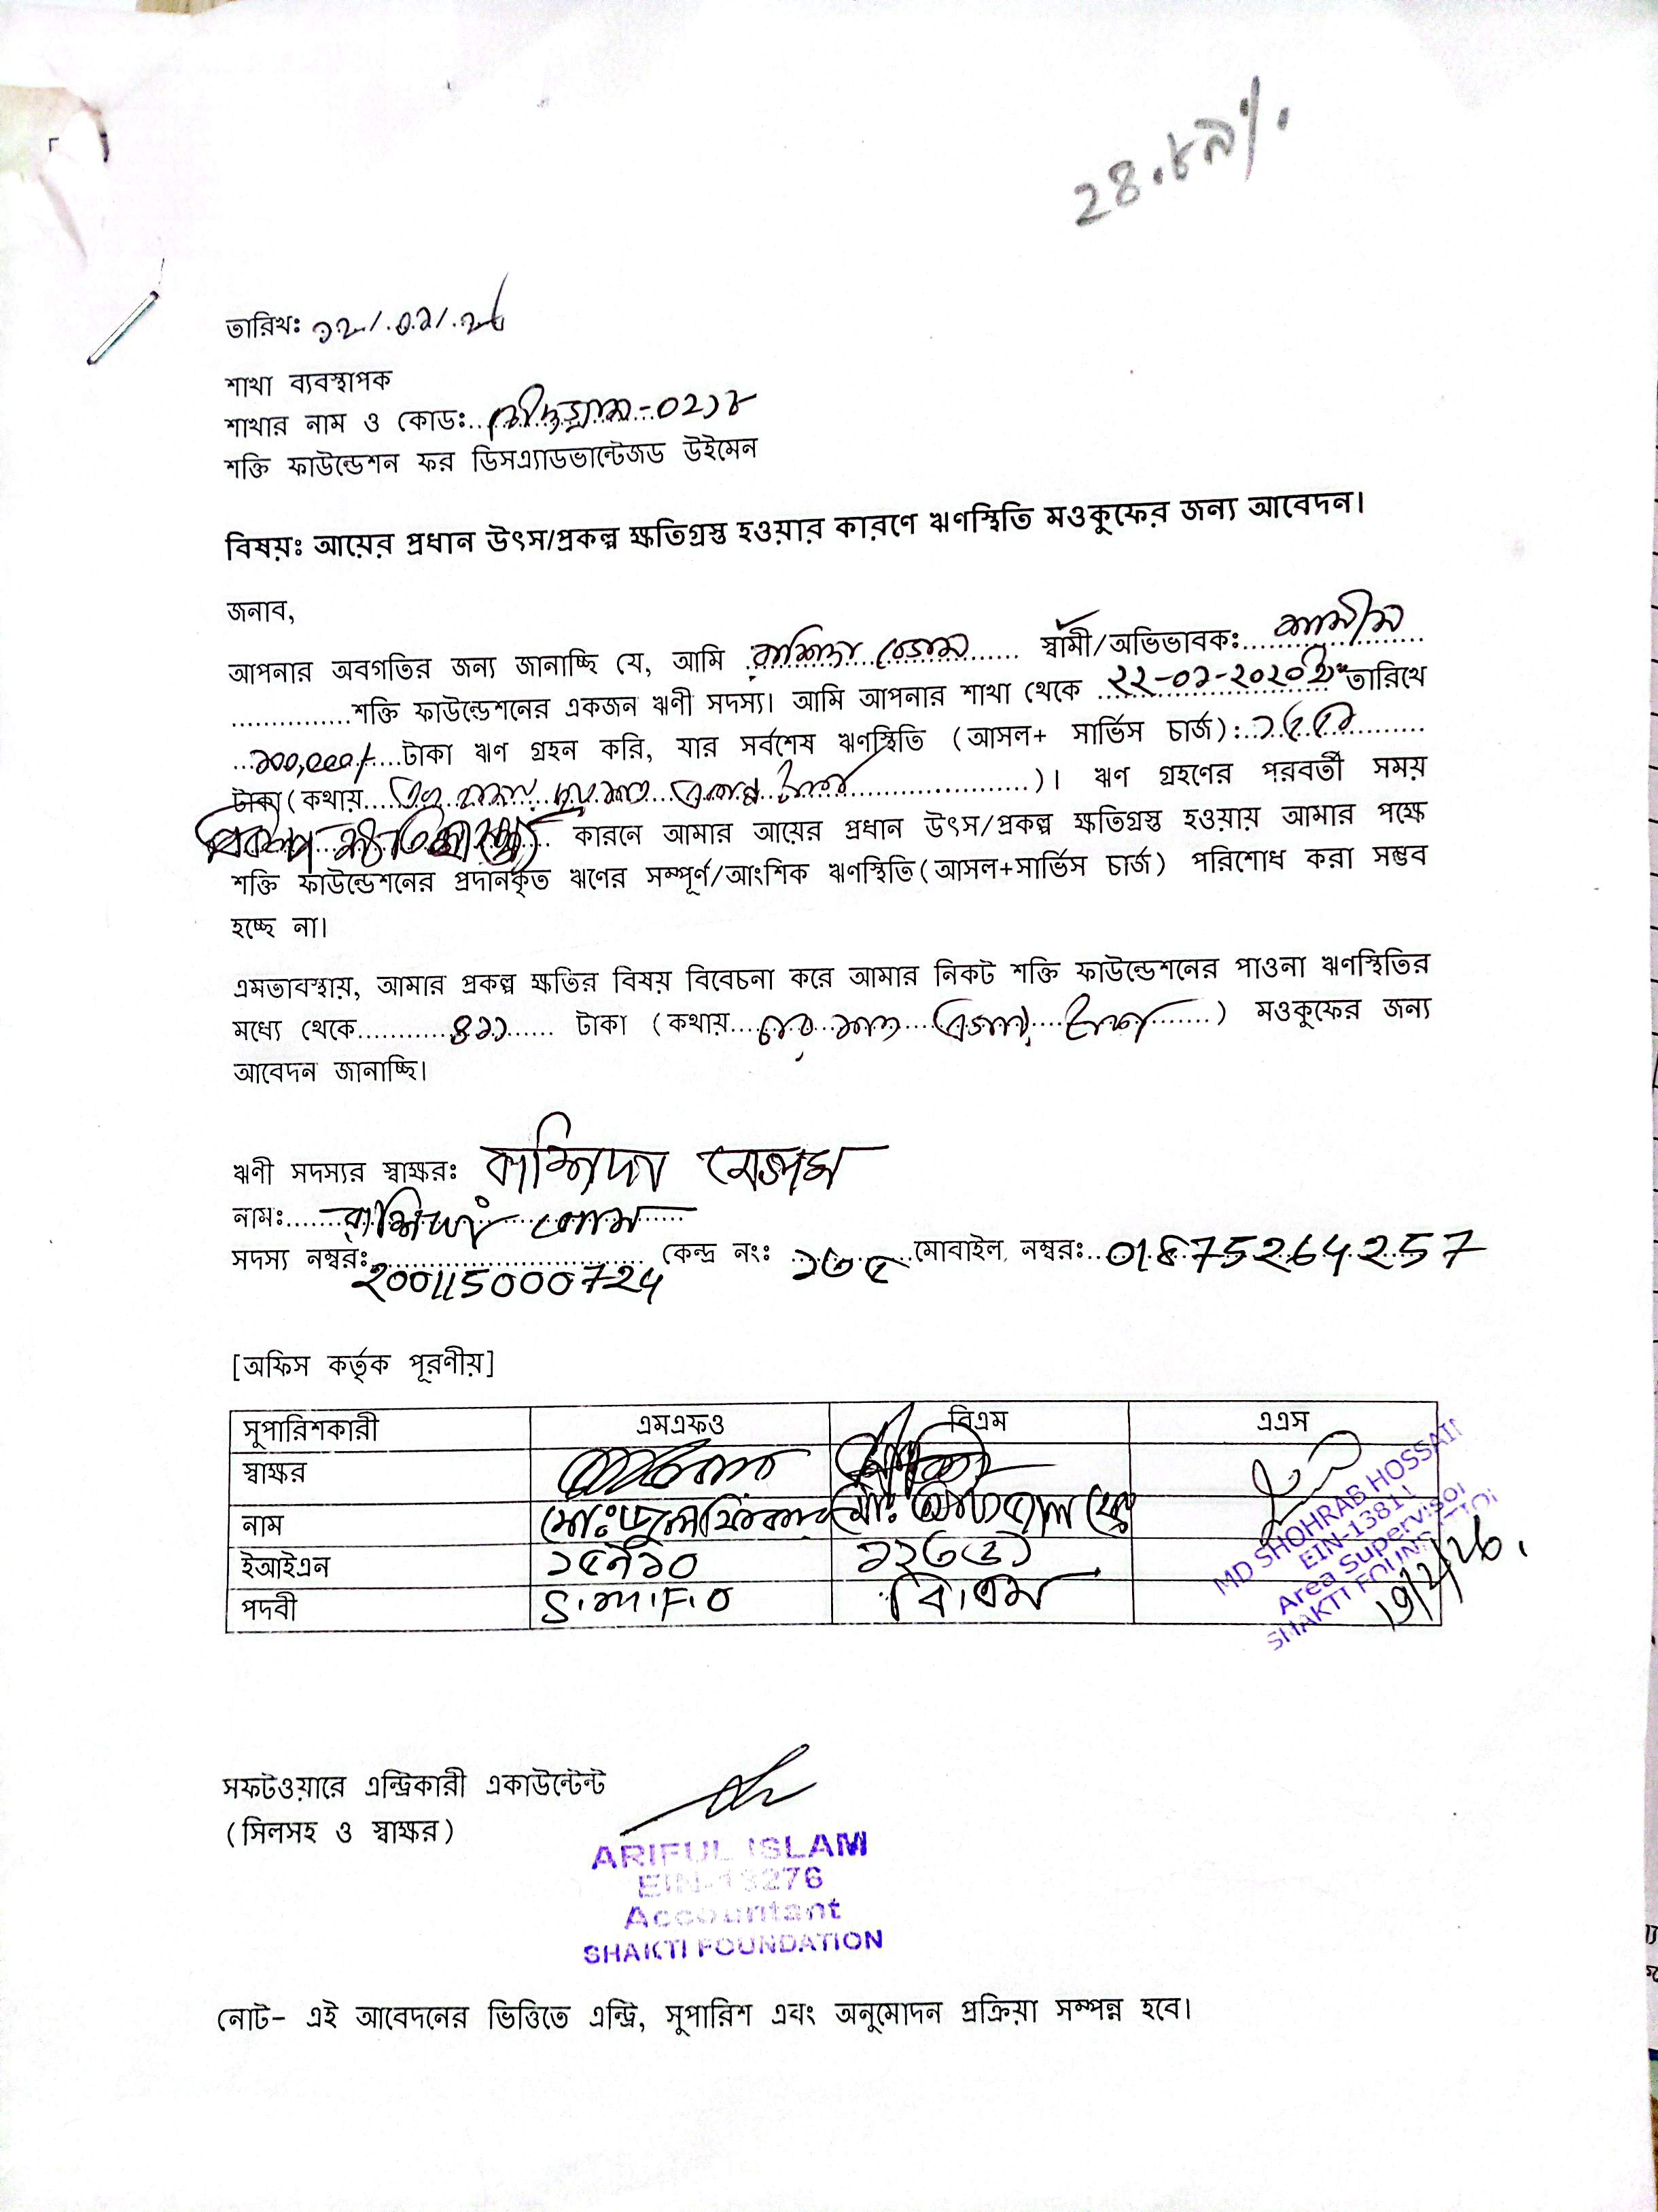 তারিখঃ ১২/০২/২৬
শাখা ব্যবস্থাপক
শাখার নাম ও কোডঃ -০২১৮
শক্তি ফাউন্ডেশন ফর ডিসএ্যাডভান্টেজড উইমেন
বিষয়ঃ আয়ের প্রধান উৎস/প্রকল্প ক্ষতিগ্রস্ত হওয়ার কারণে ঋণস্থিতি মওকুফের জন্য আবেদন।
জনাব,
আপনার অবগতির জন্য জানাচ্ছি যে, আমি রাশিদা বেগম স্বামী/অভিভাবকঃ
শক্তি ফাউন্ডেশনের একজন ঋণী সদস্য। আমি আপনার শাখা থেকে ২২-০১-২০২০ইং তারিখে
১০০,০০০/- টাকা ঋণ গ্রহন করি, যার সর্বশেষ ঋণস্থিতি (আসল+ সার্ভিস চার্জ):
টাকা (কথায় )। ঋণ গ্রহণের পরবর্তী সময়
প্রকল্প ক্ষতিগ্রস্থ কারনে আমার আয়ের প্রধান উৎস/প্রকল্প ক্ষতিগ্রস্ত হওয়ায় আমার পক্ষে
শক্তি ফাউন্ডেশনের প্রদানকৃত ঋণের সম্পূর্ণ/আংশিক ঋণস্থিতি(আসল+সার্ভিস চার্জ) পরিশোধ করা সম্ভব
হচ্ছে না।
এমতাবস্থায়, আমার প্রকল্প ক্ষতির বিষয় বিবেচনা করে আমার নিকট শক্তি ফাউন্ডেশনের পাওনা ঋণস্থিতির
মধ্যে থেকে ৪১১ টাকা (কথায় ) মওকুফের জন্য
আবেদন জানাচ্ছি।
ঋণী সদস্যর স্বাক্ষরঃ রাশিদা বেগম
নামঃ রাশিদা বেগম
সদস্য নম্বরঃ ২00115000724 কেন্দ্র নং: ১৬৫ মোবাইল নম্বরঃ 01875264257
[অফিস কর্তৃক পূরণীয়]
সুপারিশকারী এমএফও বিএম এএস
স্বাক্ষর
নাম মোঃ মোঃ
ইআইএন ১৫৭১০
পদবী S.M.F.O বি.এম
MD SHOHRAB HOSSAIN
EIN-1381
Area Supervisor
SHAKTI FOUNDATION
সফটওয়ারে এন্ট্রিকারী একাউন্টেন্ট
(সিলসহ ও স্বাক্ষর)
ARIFUL ISLAM
EIN-13276
Accountant
SHAKTI FOUNDATION
নোট- এই আবেদনের ভিত্তিতে এন্ট্রি, সুপারিশ এবং অনুমোদন প্রক্রিয়া সম্পন্ন হবে।